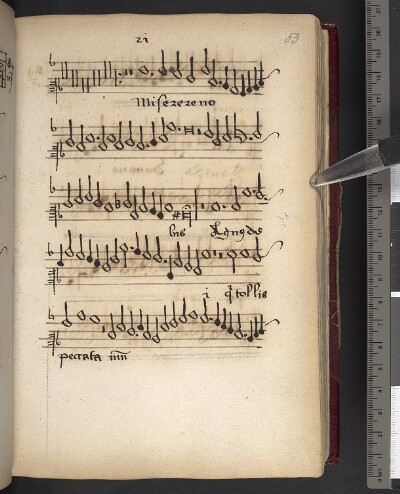 xi 53
Miserereno
bis Agnus dei
q tollis
peccata mūn